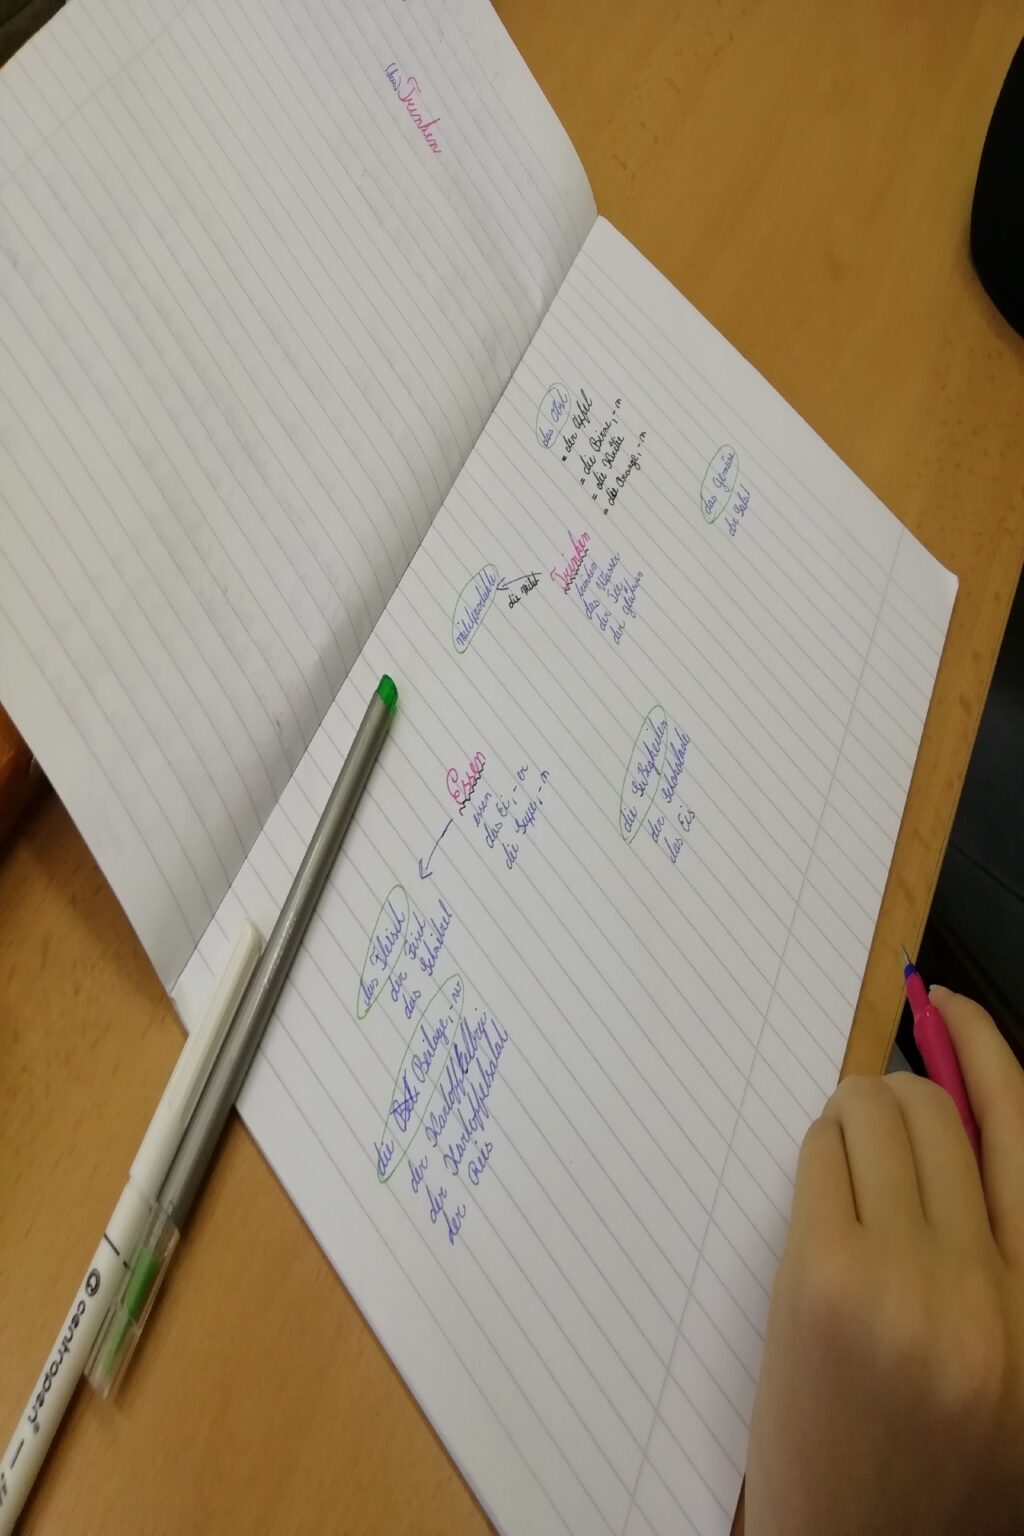 (das) Trinken
das Obst
= der Apfel
= die Birne, -n
= die
= die Orange, -n
das Gemüse
der Salat
Milchprodukte
die Milch
Trinken
trinken
das Wasser
der Tee
der
Essen
essen
das Ei, -er
die Suppe, -n
die
der Schokolade
das Eis
das Fleisch
der Fisch
das Schnitzel
die Beilage, -n
der Kartoffelbrei
der Kartoffelsalat
der Reis
centropen